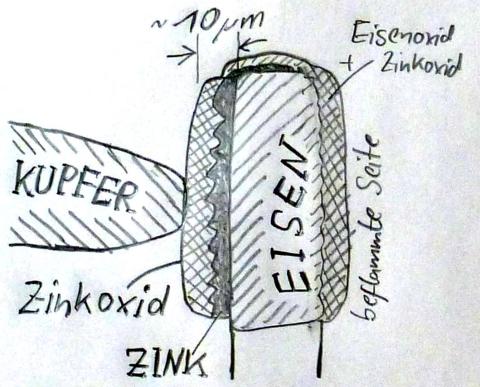 ~ 10 µm
Eisenoxid
+ Zinkoxid
KUPFER
EISEN
beflammte Seite
Zinkoxid
ZINK